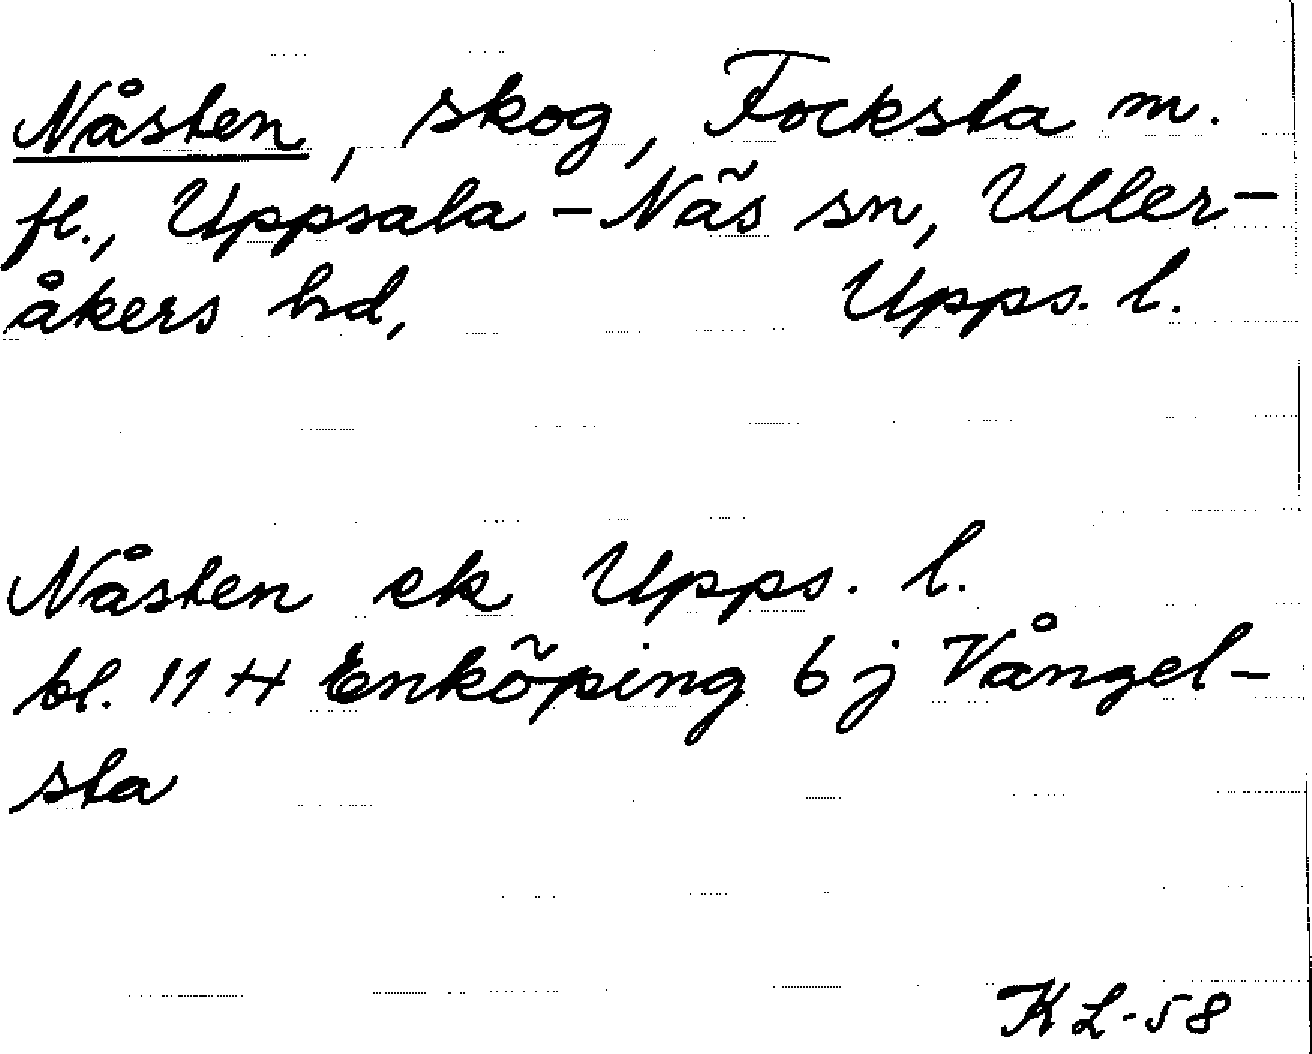 Nåsten, skog, Focksta m.
fl., Uppsala-Näs sn, Uller-
åkers hd, Upps. l.
Nåsten ek Upps. l.
bl. 11 H Enköping 6 j Vångel-
sta
KL-58